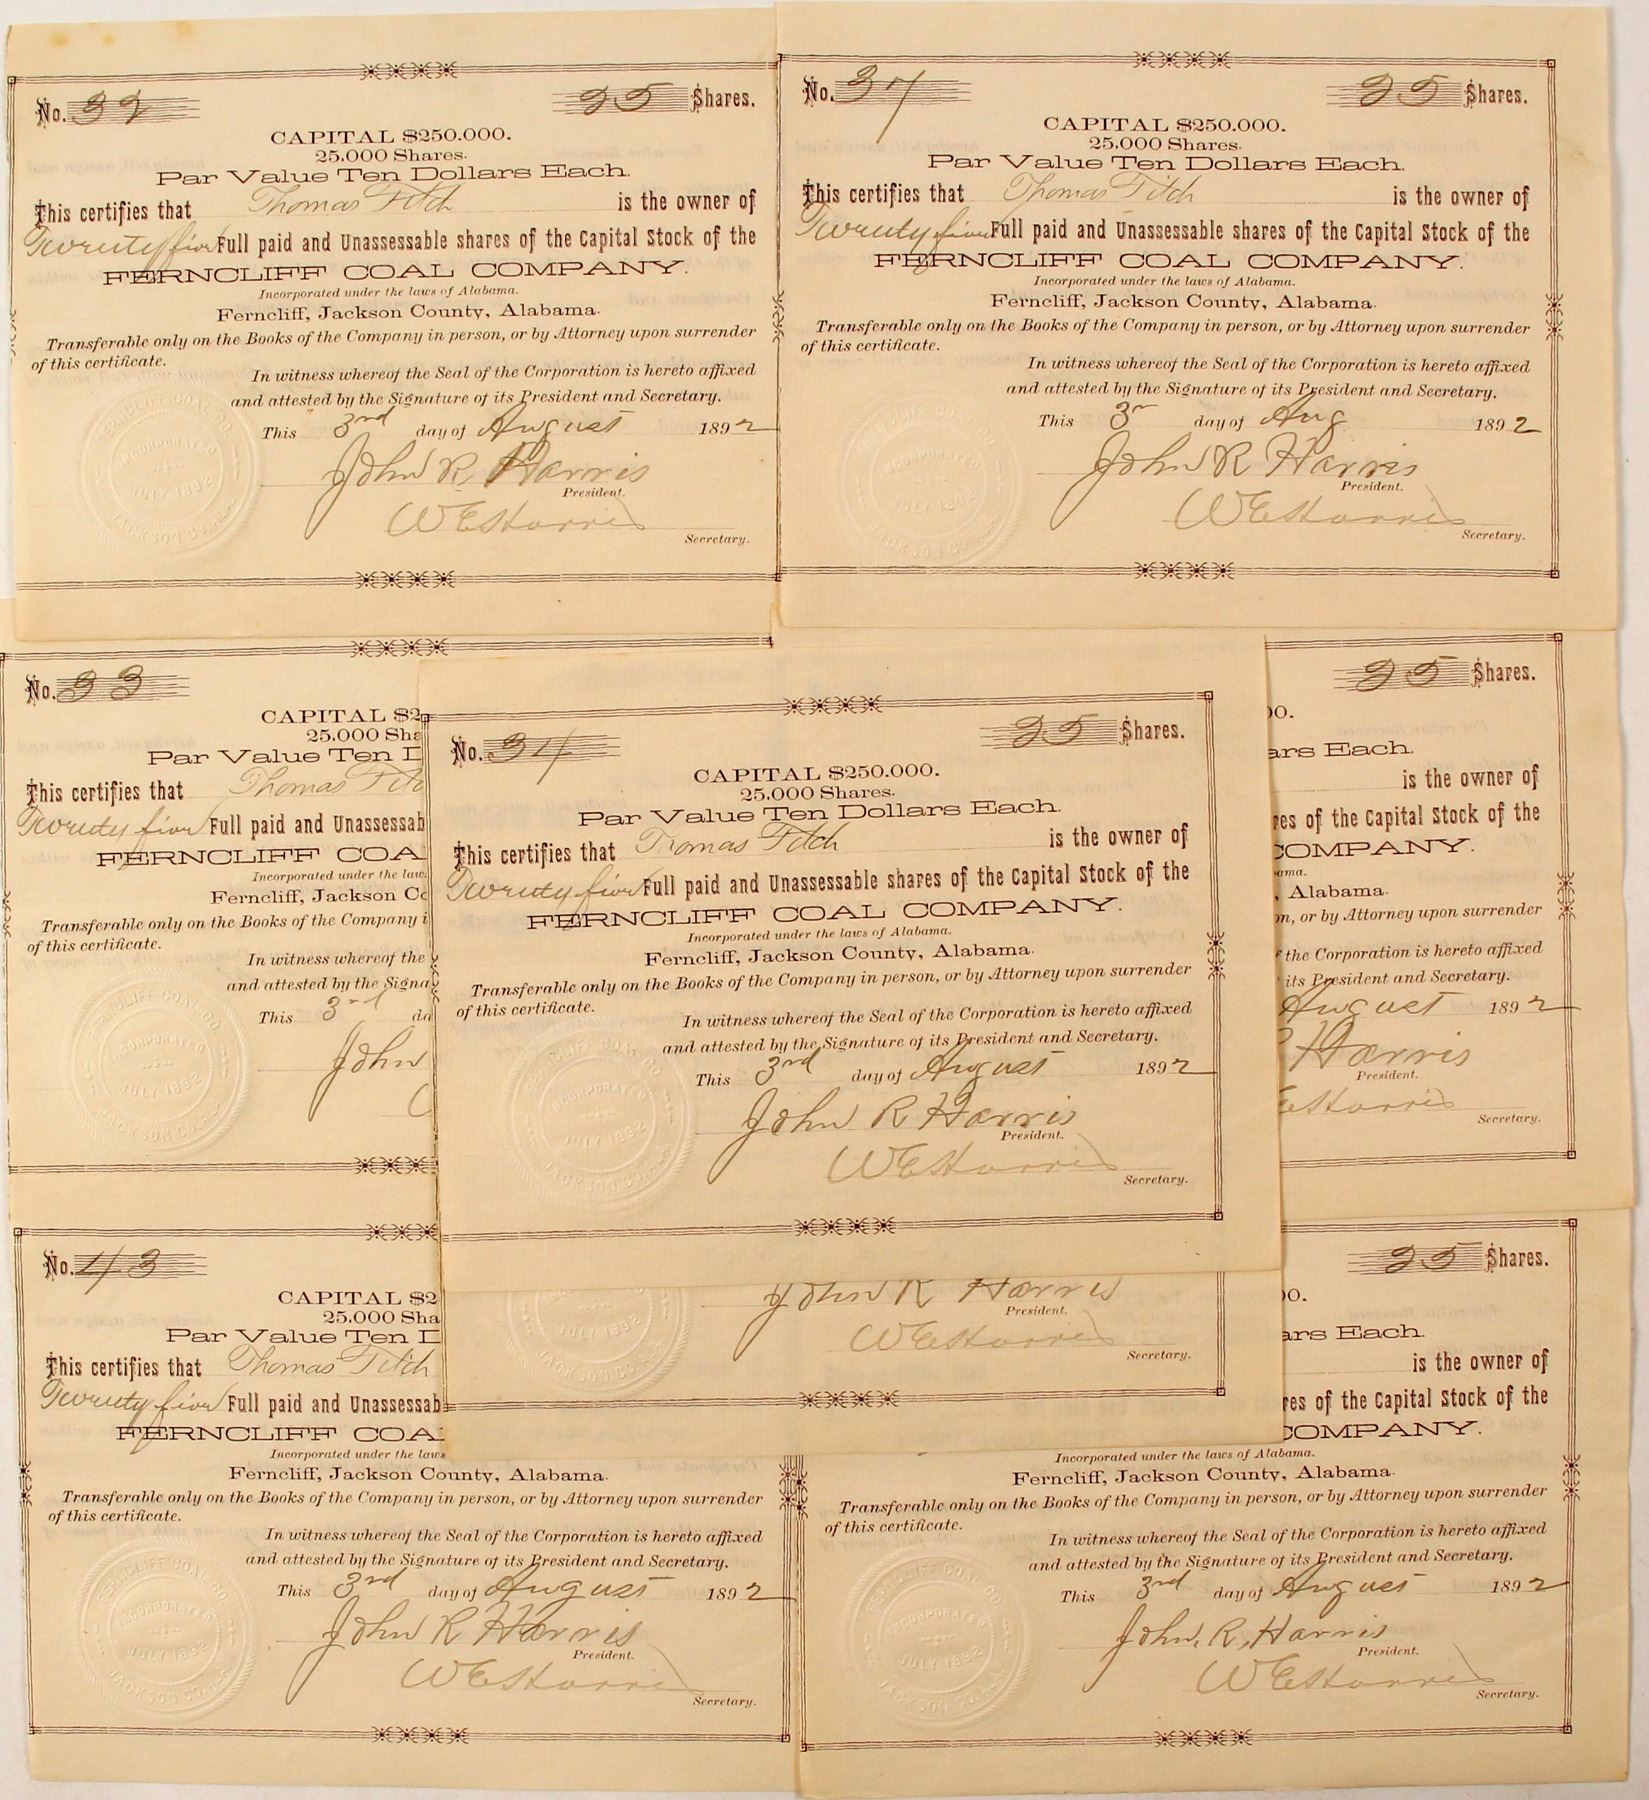 No. 32 25 Shares.
CAPITAL $250.000.
25.000 Shares.
Par Value Ten Dollars Each.
This certifies that Thomas Fitch is the owner of
Twenty five Full paid and Unassessable shares of the Capital Stock of the
FERNCLIFF COAL COMPANY.
Incorporated under the laws of Alabama.
Ferncliff, Jackson County, Alabama.
Transferable only on the Books of the Company in person, or by Attorney upon surrender
of this certificate.
In witness whereof the Seal of the Corporation is hereto affixed
and attested by the Signature of its President and Secretary.
This 3rd day of August 1892
John R Harris
President.
W E Harris
Secretary.
FERNCLIFF COAL CO
INCORPORATED
JULY 1892
JACKSON CO. ALA
No. 37 25 Shares.
CAPITAL $250.000.
25.000 Shares.
Par Value Ten Dollars Each.
This certifies that Thomas Fitch is the owner of
Twenty five Full paid and Unassessable shares of the Capital Stock of the
FERNCLIFF COAL COMPANY.
Incorporated under the laws of Alabama.
Ferncliff, Jackson County, Alabama.
Transferable only on the Books of the Company in person, or by Attorney upon surrender
of this certificate.
In witness whereof the Seal of the Corporation is hereto affixed
and attested by the Signature of its President and Secretary.
This 3r day of Aug 1892
John R Harris
President.
W E Harris
Secretary.
FERNCLIFF COAL CO
INCORPORATED
JULY 1892
JACKSON CO. ALA
No. 33
CAPITAL $2
25.000 Sha
Par Value Ten D
This certifies that Thomas Fitc
Twenty five Full paid and Unassessab
FERNCLIFF COA
Incorporated under the law
Ferncliff, Jackson Co
Transferable only on the Books of the Company i
of this certificate.
In witness whereof the
and attested by the Signa
This 3rd da
John
FERNCLIFF COAL CO
INCORPORATED
JULY 1892
JACKSON CO. ALA
No. 34 25 Shares.
CAPITAL $250.000.
25.000 Shares.
Par Value Ten Dollars Each.
This certifies that Thomas Fitch is the owner of
Twenty five Full paid and Unassessable shares of the Capital Stock of the
FERNCLIFF COAL COMPANY.
Incorporated under the laws of Alabama.
Ferncliff, Jackson County, Alabama.
Transferable only on the Books of the Company in person, or by Attorney upon surrender
of this certificate.
In witness whereof the Seal of the Corporation is hereto affixed
and attested by the Signature of its President and Secretary.
This 3rd day of August 1892
John R Harris
President.
W E Harris
Secretary.
FERNCLIFF COAL CO
INCORPORATED
JULY 1892
JACKSON CO. ALA
25 Shares.
00.
ars Each.
is the owner of
res of the Capital Stock of the
COMPANY.
ama.
, Alabama.
on, or by Attorney upon surrender
f the Corporation is hereto affixed
its President and Secretary.
August 1892
Harris
President.
E Harris
Secretary.
John R Harris
President.
W E Harris
Secretary.
JULY 1892
JACKSON CO. ALA
No. 43
CAPITAL $2
25.000 Sha
Par Value Ten D
This certifies that Thomas Fitch
Twenty five Full paid and Unassessab
FERNCLIFF COA
Incorporated under the laws
Ferncliff, Jackson County, Alabama.
Transferable only on the Books of the Company in person, or by Attorney upon surrender
of this certificate.
In witness whereof the Seal of the Corporation is hereto affixed
and attested by the Signature of its President and Secretary.
This 3rd day of August 1892
John R Harris
President.
W E Harris
Secretary.
FERNCLIFF COAL CO
INCORPORATED
JULY 1892
JACKSON CO. ALA
25 Shares.
00.
ars Each.
is the owner of
res of the Capital Stock of the
COMPANY.
Incorporated under the laws of Alabama.
Ferncliff, Jackson County, Alabama.
Transferable only on the Books of the Company in person, or by Attorney upon surrender
of this certificate.
In witness whereof the Seal of the Corporation is hereto affixed
and attested by the Signature of its President and Secretary.
This 3rd day of August 1892
John. R. Harris
President.
W E Harris
Secretary.
FERNCLIFF COAL CO
INCORPORATED
JULY 1892
JACKSON CO. ALA